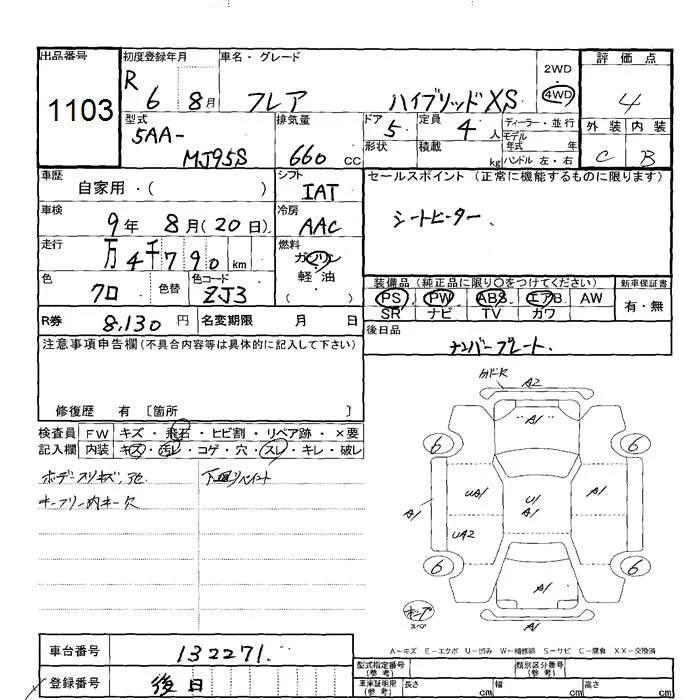 出品番号 初度登録年月 車名・グレード 2WD 評価点
1103 R 6 8月 フレア ハイブリッドXS 4WD 4
型式 排気量 ドア 5 定員 4 人 ディーラー・並行 外装 内装
5AA- モデル
MJ95S 660 cc 形状 積載 kg 年式 年 C B
ハンドル 左・右
車歴 シフト セールスポイント (正常に機能するものに限ります)
自家用・( ) IAT
車検 冷房 シートヒーター.
9年 8月(20日) AAC
走行 燃料
万4千790km ガソリン
色 色替 色コード 軽油 装備品 (純正品に限り○をつけてください) 新車保証書
クロ ZJ3 ( ) PS PW ABS エアB AW 有・無
SR ナビ TV カワ
R券 8,130円 名変期限 月 日 後日品
注意事項申告欄(不具合内容等は具体的に記入して下さい) ナンバープレート.
修復歴 有 [箇所 ]
検査員 FW キズ・飛石・ヒビ割・リペア跡・×要
記入欄 内装 キズ・汚レ・コゲ・穴・スレ・キレ・破レ
A2
A1
6 6
UA1 U1 A1
A1
A1
UA2
6 6
A1
A1
A-キズ E-エクボ U-凹み W-補修跡 S-サビ C-腐食 XX-交換済
車台番号 132271. 型式指定番号 (参考) 類別区分番号 (参考)
登録番号 後日 車庫証明用 (参考) 長さ cm 幅 cm 高さ cm